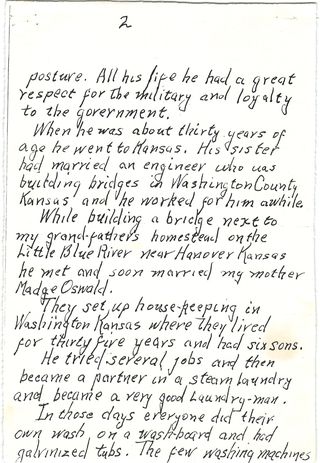 2
posture. All his life he had a great
respect for the military and loyalty
to the government.
When he was about thirty years of
age he went to Kansas. His sister
had married an engineer who was
building bridges in Washington County
Kansas and he worked for him awhile
While building a bridge next to
my grand-fathers homestead on the
Little Blue River near Hanover Kansas
he met and soon married my mother
Madge Oswald.
They set up house-keeping in
Washington Kansas where they lived
for thirty five years and had six sons.
He tried several jobs and then
became a partner in a steam laundry
and became a very good Laundry-man.
In those days everyone did their
own wash on a wash-board and had
galvinized tubs. The few washing machines